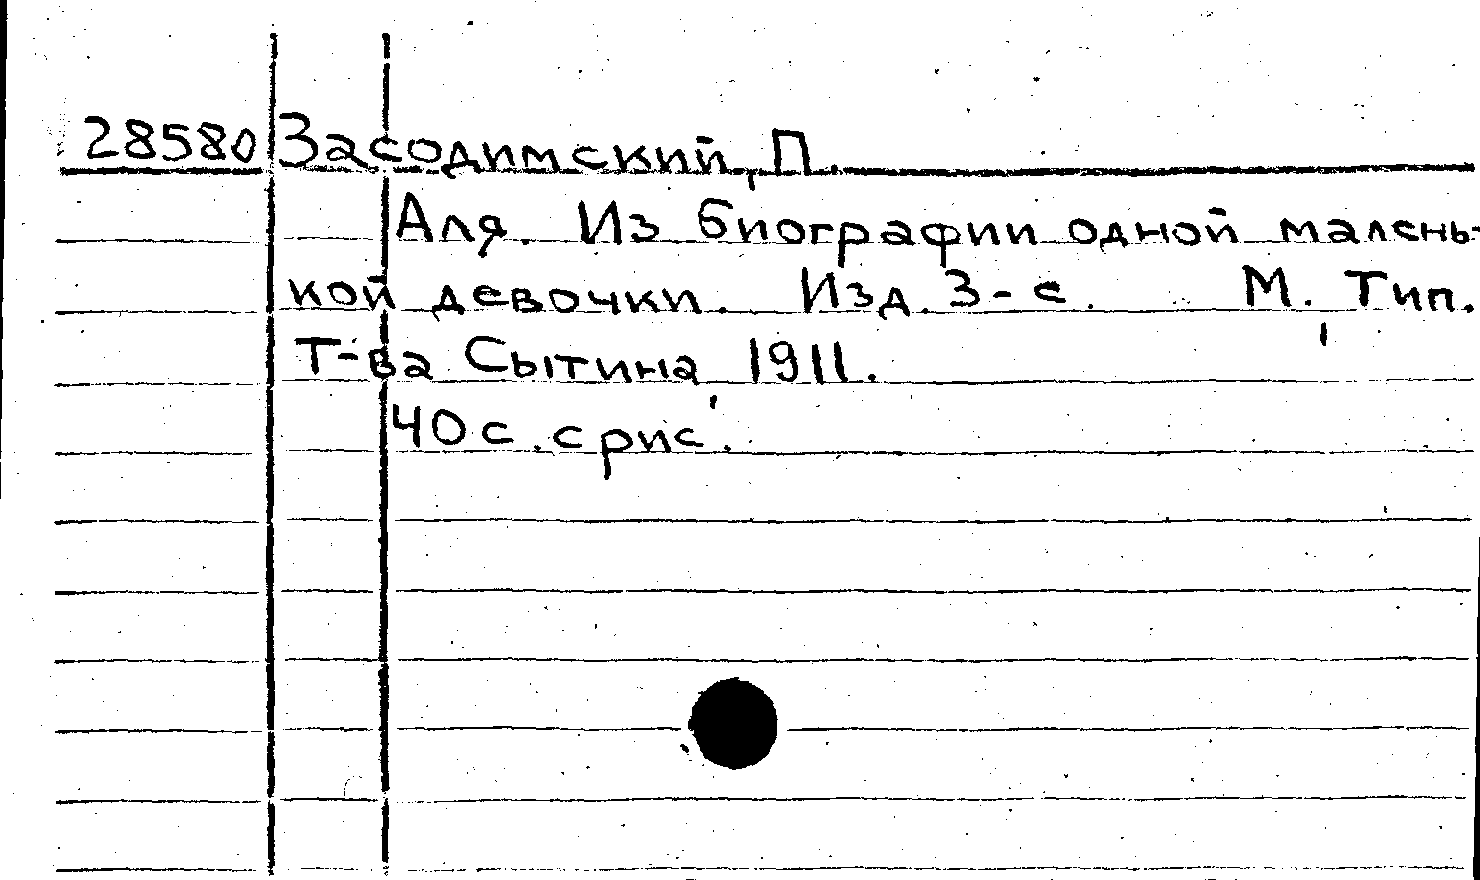 28580 Засодимский, П.
Аля. Из биографии одной малень-
кой девочки. Изд. 3-е. М., Тип.
Т-ва Сытина, 1911.
40 с. с рис.